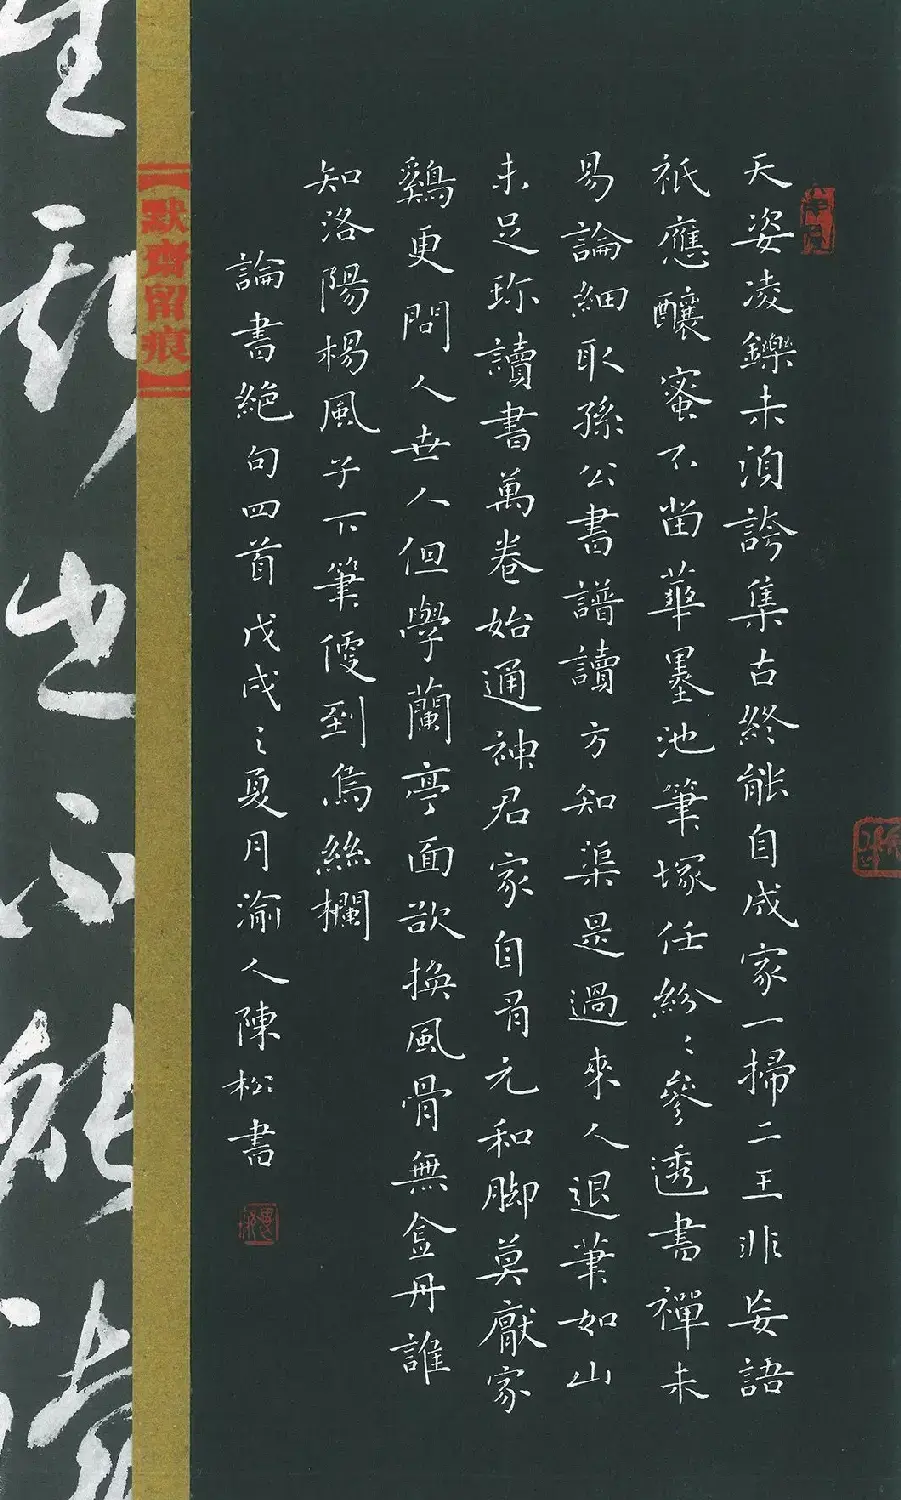 天姿凌鑠未須誇集古終能自成家一掃二王非妄語
祇應釀蜜不當華墨池筆塚任紛〻參透書禪未
易論細取孫公書譜讀方知渠是過來人退筆如山
未足珍讀書萬卷始通神君家自有元和脚莫厭家
鷄更問人世人但學蘭亭面欲換風骨無金丹誰
知洛陽楊風子下筆便到烏絲欄
論書絕句四首戊戌〻夏月渝人陳松書
默齋留痕